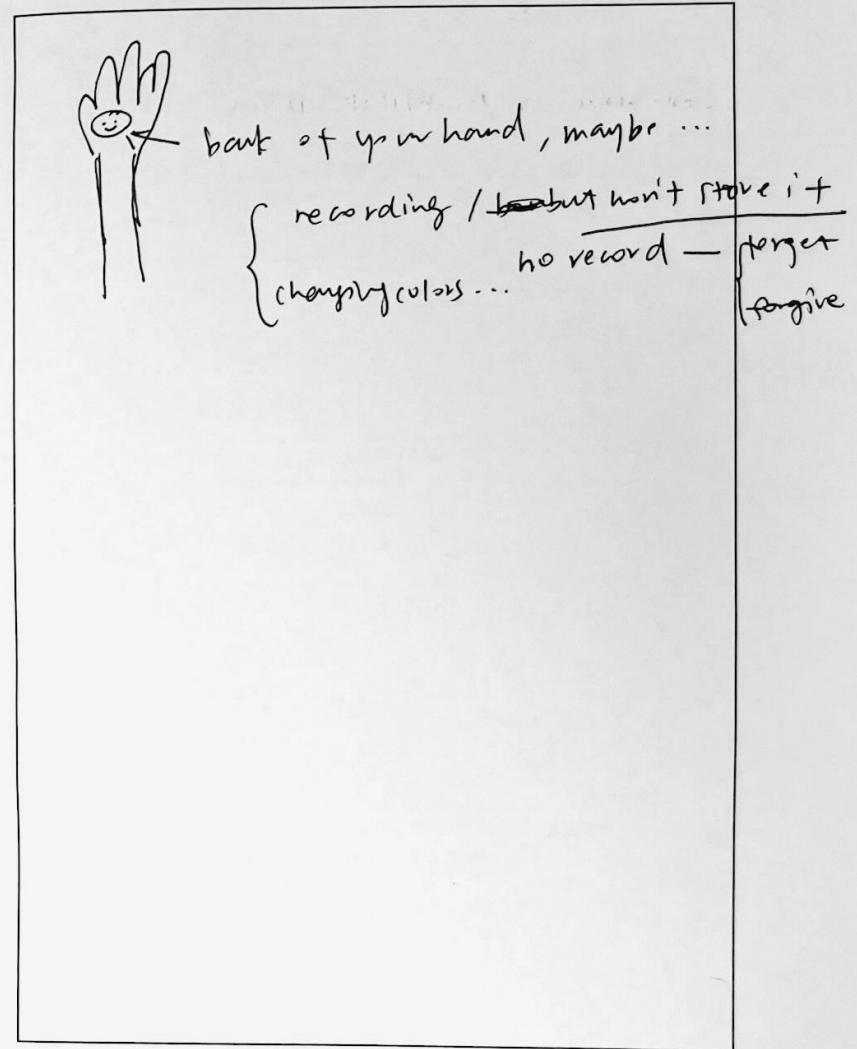 back of your hand, maybe ...
recording / but won't store it
no record — forget
changing colors ... forgive